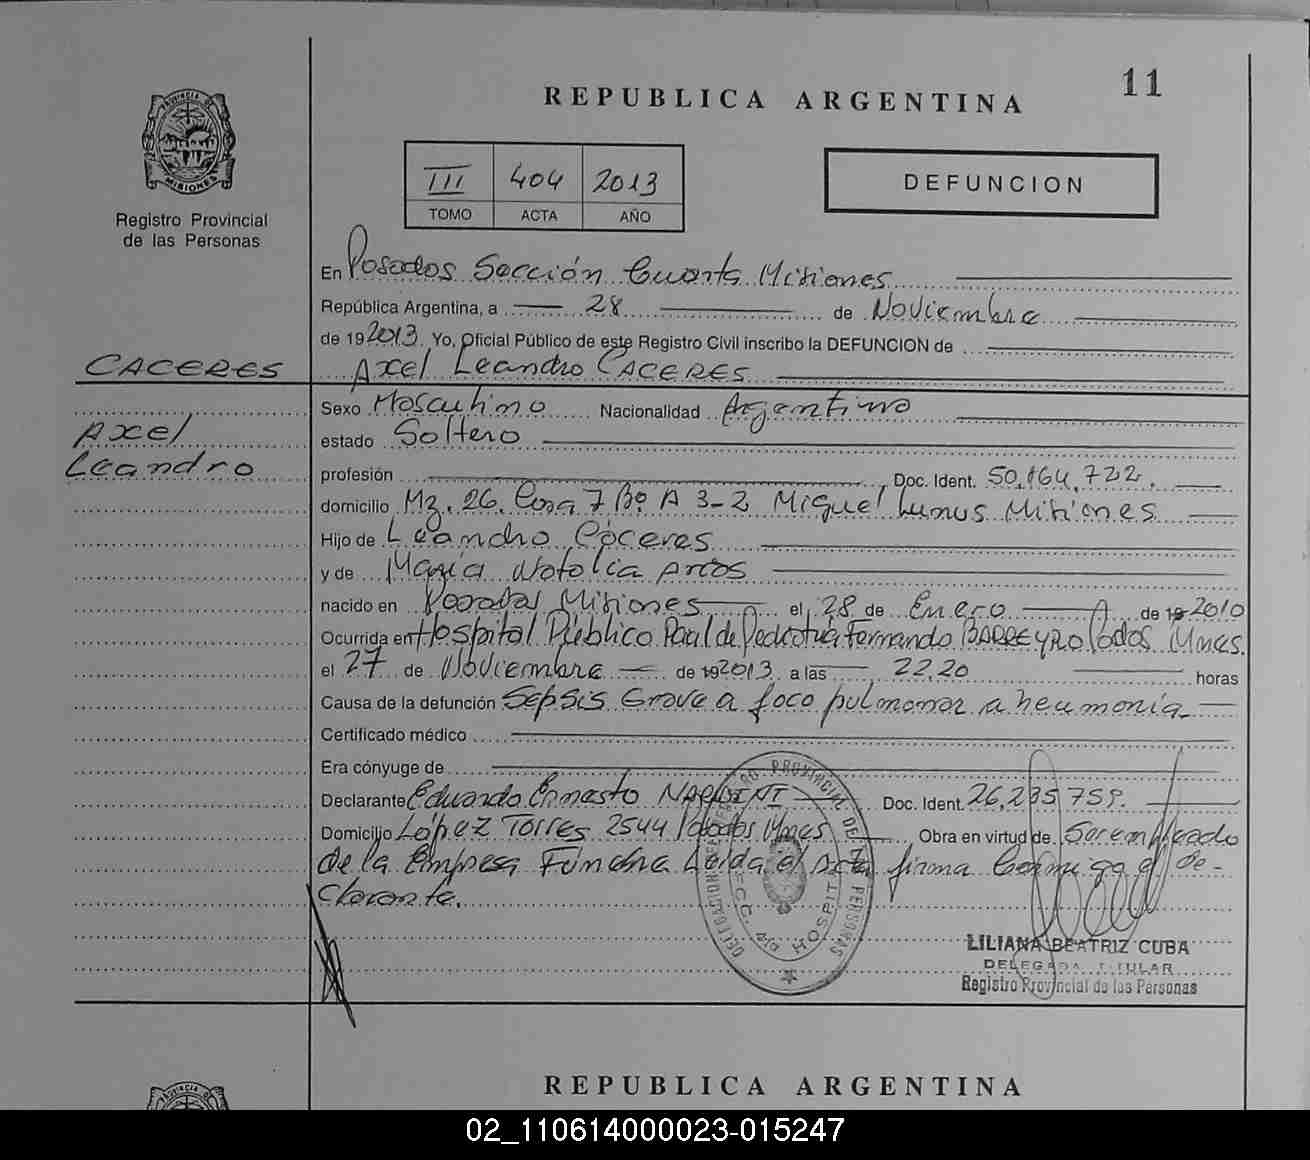 11
REPUBLICA ARGENTINA
PROVINCIA DE
MISIONES
Registro Provincial
de las Personas
III 404 2013
TOMO ACTA AÑO
DEFUNCION
En Posadas Sección Cuarta Misiones
República Argentina, a 28 de Noviembre
de 19 2013. Yo, Oficial Público de este Registro Civil inscribo la DEFUNCION de
CACERES
Axel Leandro CACERES
Axel
Leandro
Sexo Masculino Nacionalidad Argentino
estado Soltero
profesión Doc. Ident. 50,164,722.
domicilio Mz. 26. Casa 7 Bº A 3-2 Miguel Lanus Misiones
Hijo de Leandro Cáceres
y de María Natalia Arcos
nacido en Posadas Misiones el 28 de Enero de 19 2010
Ocurrida en Hospital Público de Pediatría Fernando BARREYRO Pdas Mnes.
el 27 de Noviembre de 19 2013 a las 22,20 horas
Causa de la defunción Sepsis Grave a foco pulmonar a neumonía
Certificado médico
Era cónyuge de
Declarante Eduardo Ernesto Doc. Ident. 26,235 759.
Domicilio López Torres 2544 Posadas Mnes Obra en virtud de Ser empleado
de la Empresa Fúnebre Leída el Acta firma Conmigo el de-
clarante.
PROVINCIAL DE LAS PERSONAS
HOSPITAL
LILIANA BEATRIZ CUBA
DELEGADA TITULAR
Registro Provincial de las Personas
REPUBLICA ARGENTINA
02_110614000023-015247